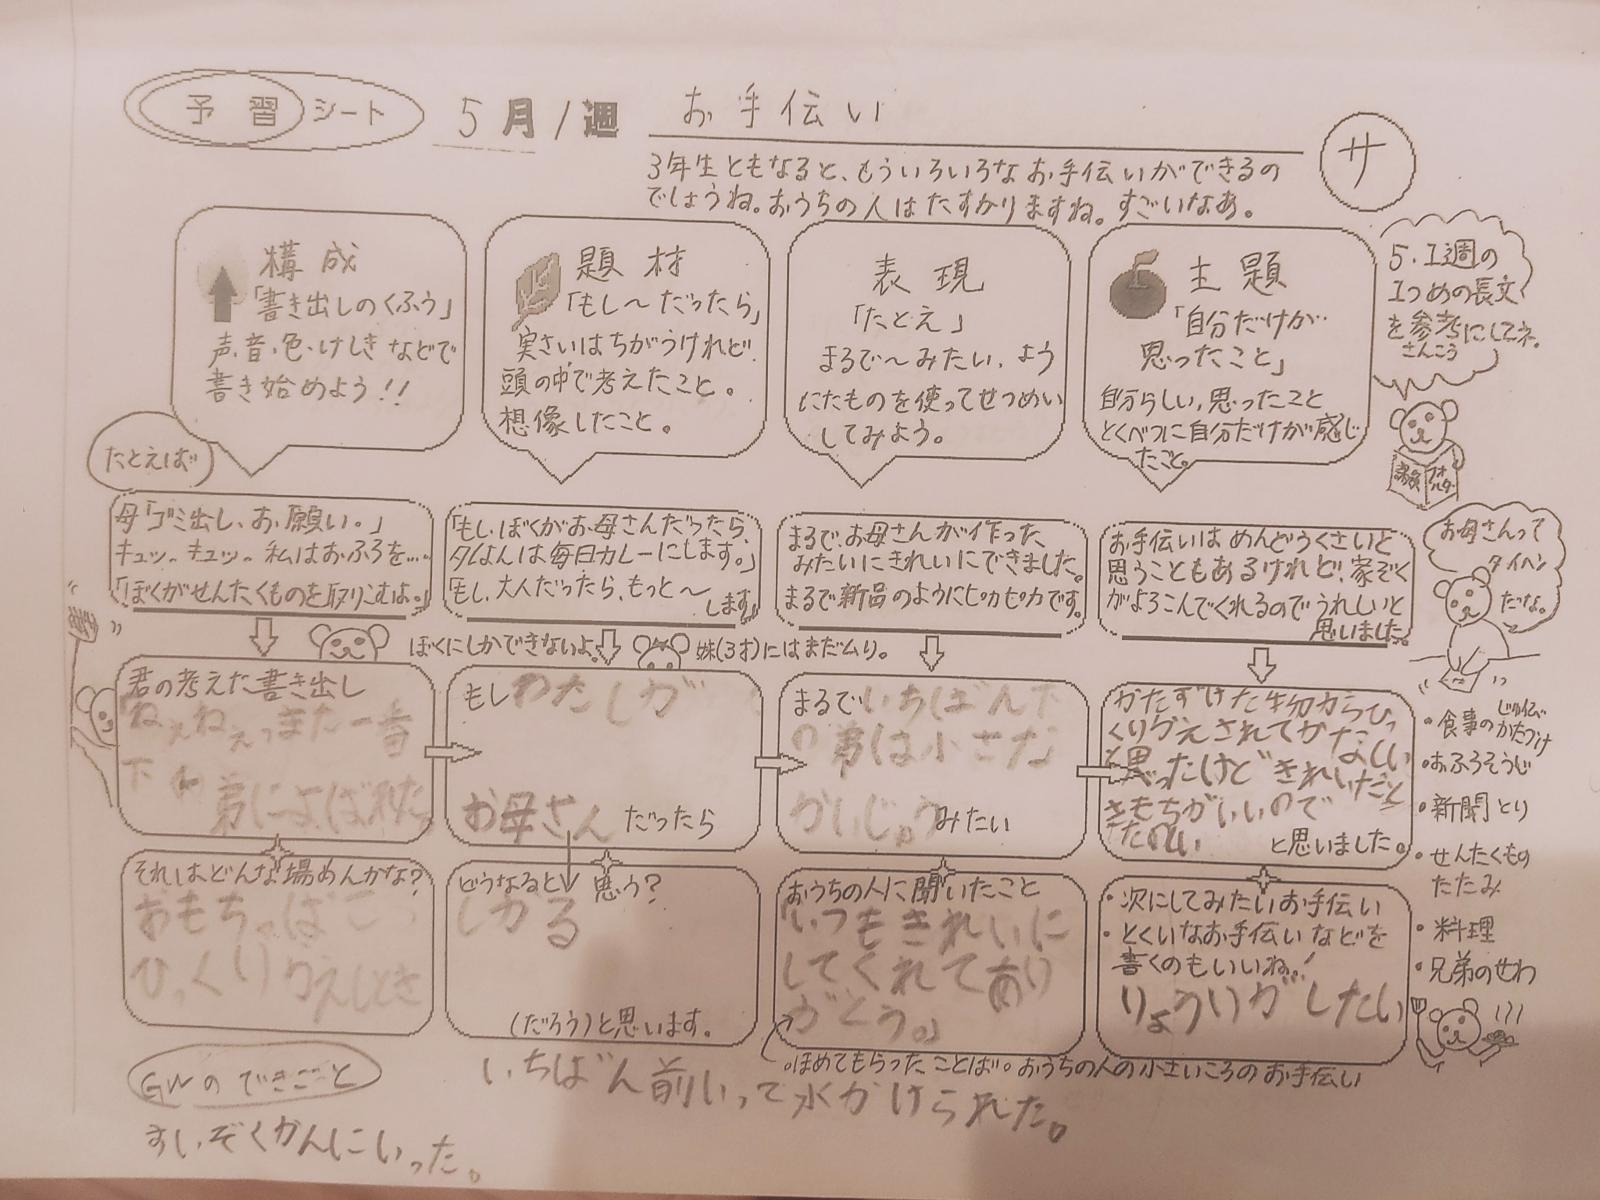 予習シート 5月1週 お手伝い
サ
3年生ともなると、もういろいろなお手伝いができるの
でしょうね。おうちの人はたすかりますね。すごいなあ。
構成
「書き出しのくふう」
声・音・色・けしきなどで
書き始めよう!!
題材
「もし〜だったら」
実さいはちがうけれど、
頭の中で考えたこと。
想像したこと。
表現
「たとえ」
まるで〜みたい、よう
にたものを使ってせつめい
してみよう。
主題
「自分だけが
思ったこと」
自分らしい、思ったこと
とくべつに自分だけが感じ
たこと。
5.1週の
1つめの長文
を参考にしてネ。
さんこう
たとえば
母「ゴミ出し、お願い。」
キュッ、キュッ、私はおふろを……
「ぼくがせんたくものを取りこむよ。」
「もし、ぼくがお母さんだったら、
夕はんは毎日カレーにします。」
「もし、大人だったら、もっと〜
します。」
まるで、お母さんが作った
みたいにきれいにできました。
まるで新品のようにピカピカです。
お手伝いはめんどうくさいと
思うこともあるけれど、家ぞく
がよろこんでくれるのでうれしいと
思いました。
お母さんって
タイヘン
だな。
ぼくにしかできないよ。
妹(3才)にはまだムリ。
君の考えた書き出し
ねえねえっまた一番
下の
弟によばれた
もしわたしが
お母さんだったら
まるでいちばん下
の弟は小さな
かいじゅうみたい
かたずけた物からひっ
くりがえされてかなしい
と思ったけどきれいだと
きもちがいいので
たのしい
と思いました。
それは、どんな場めんかな?
おもちゃばこ
ひっくりがえしとき
どうなると思う?
しかる
(だろう)と思います。
おうちの人に聞いたこと
「いつもきれいに
してくれてあり
がとう。」
・ほめてもらったことば・おうちの人の小さいころのお手伝い
・次にしてみたいお手伝い
・とくいなお手伝いなどを
書くのもいいね!
りょうりがしたい
・食事のじゅんび
かたづけ
・おふろそうじ
・新聞とり
・せんたくもの
たたみ
・料理
・兄弟のせわ
GWのできごと
すいぞくかんにいった。
いちばん前いって水かけられた。